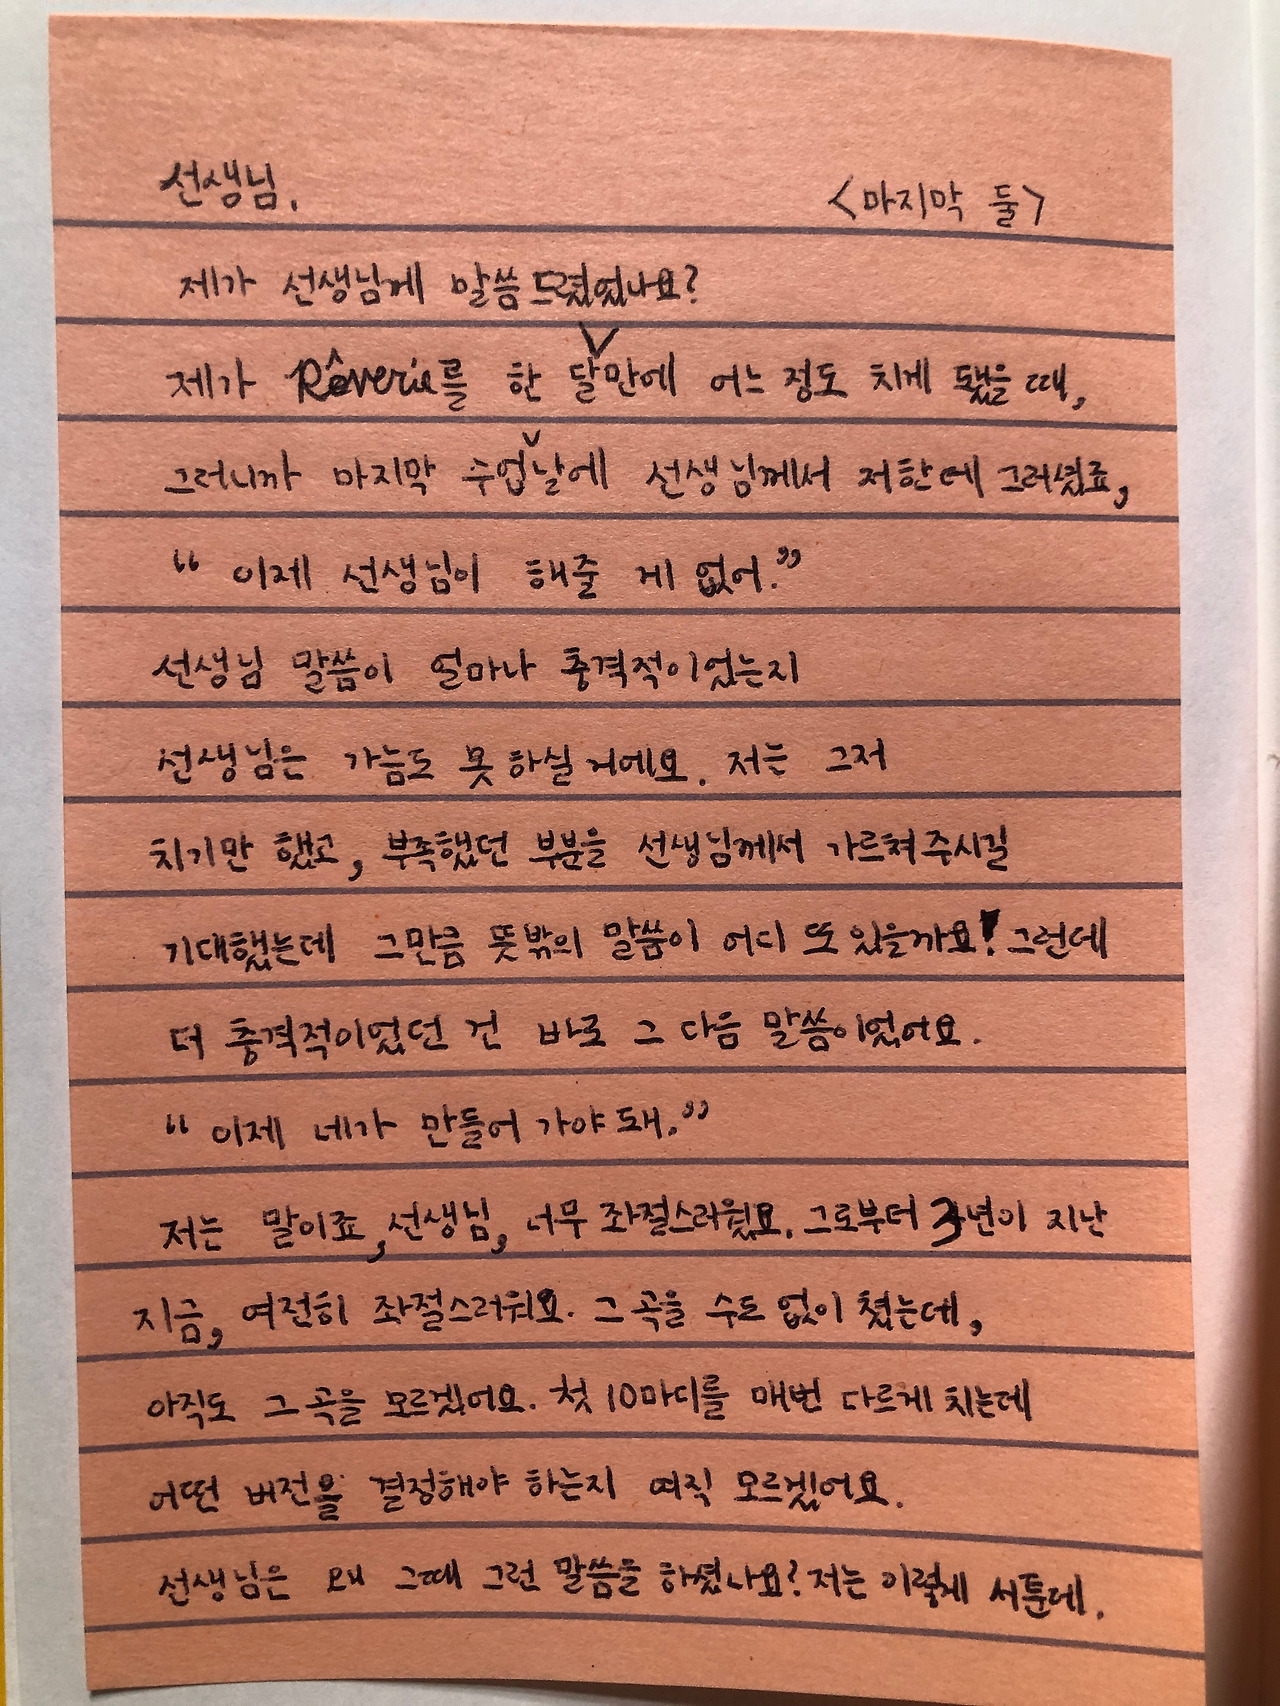 선생님.
<마지막 둘>
제가 선생님께 말씀 드렸었나요?
제가 Rêverie를 한 달∨만에 어느 정도 치게 됐을 때,
그러니까 마지막 수업∨날에 선생님께서 저한테 그러셨죠,
“이제 선생님이 해줄 게 없어.”
선생님 말씀이 얼마나 충격적이었는지
선생님은 가늠도 못 하실 거에요. 저는 그저
치기만 했고, 부족했던 부분을 선생님께서 가르쳐주시길
기대했는데 그만큼 뜻밖의 말씀이 어디 또 있을까요! 그런데
더 충격적이었던 건 바로 그 다음 말씀이었어요.
“이제 네가 만들어 가야 돼.”
저는 말이죠, 선생님, 너무 좌절스러웠요. 그로부터 3년이 지난
지금, 여전히 좌절스러워요. 그 곡을 수도 없이 쳤는데,
아직도 그 곡을 모르겠어요. 첫 10마디를 매번 다르게 치는데
어떤 버전을 결정해야 하는지 여직 모르겠어요.
선생님은 왜 그때 그런 말씀을 하셨나요? 저는 이렇게 서툰데.